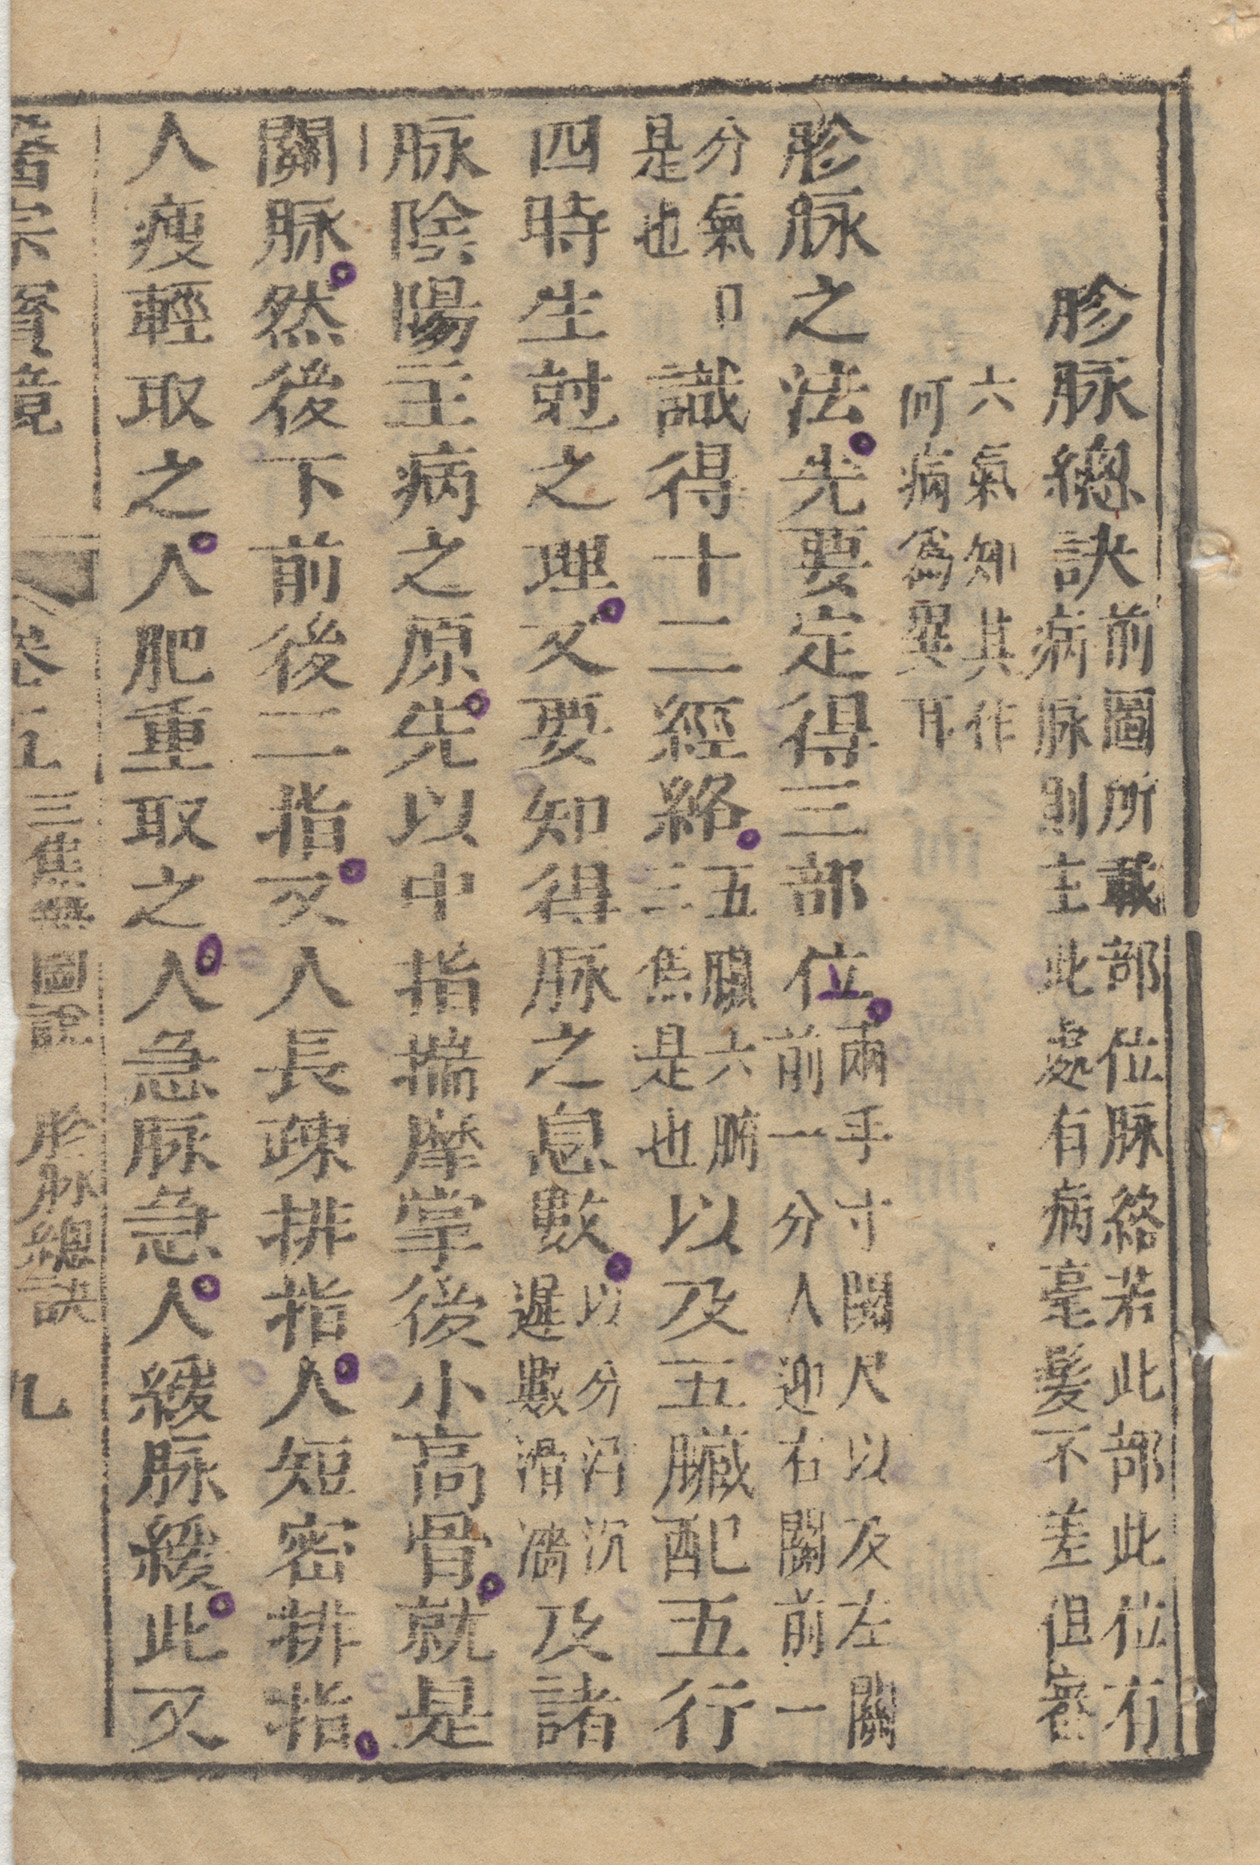 胗脉總訣前圖所載部位脉絡若此部此位有
病脉則主此處有病毫髮不差但審
六氣知其作
何病爲異耳
胗脉之法先要定得三部位兩手寸關尺以及左關
前一分人迎右關前一
分氣口
是也
識得十二經絡五臟六腑
三焦是也以及五臟配五行
四時生尅之理又要知得脉之息數以分浮沉
遲數滑濇及諸
脉陰陽主病之原先以中指揣摩掌後小高骨就是
關脉然後下前後二指又人長疎排指人短密排指
人瘦輕取之人肥重取之人急脉急人緩脉緩此又
醫宗寶鏡
卷五
三焦
圖說
胗脉總訣
九